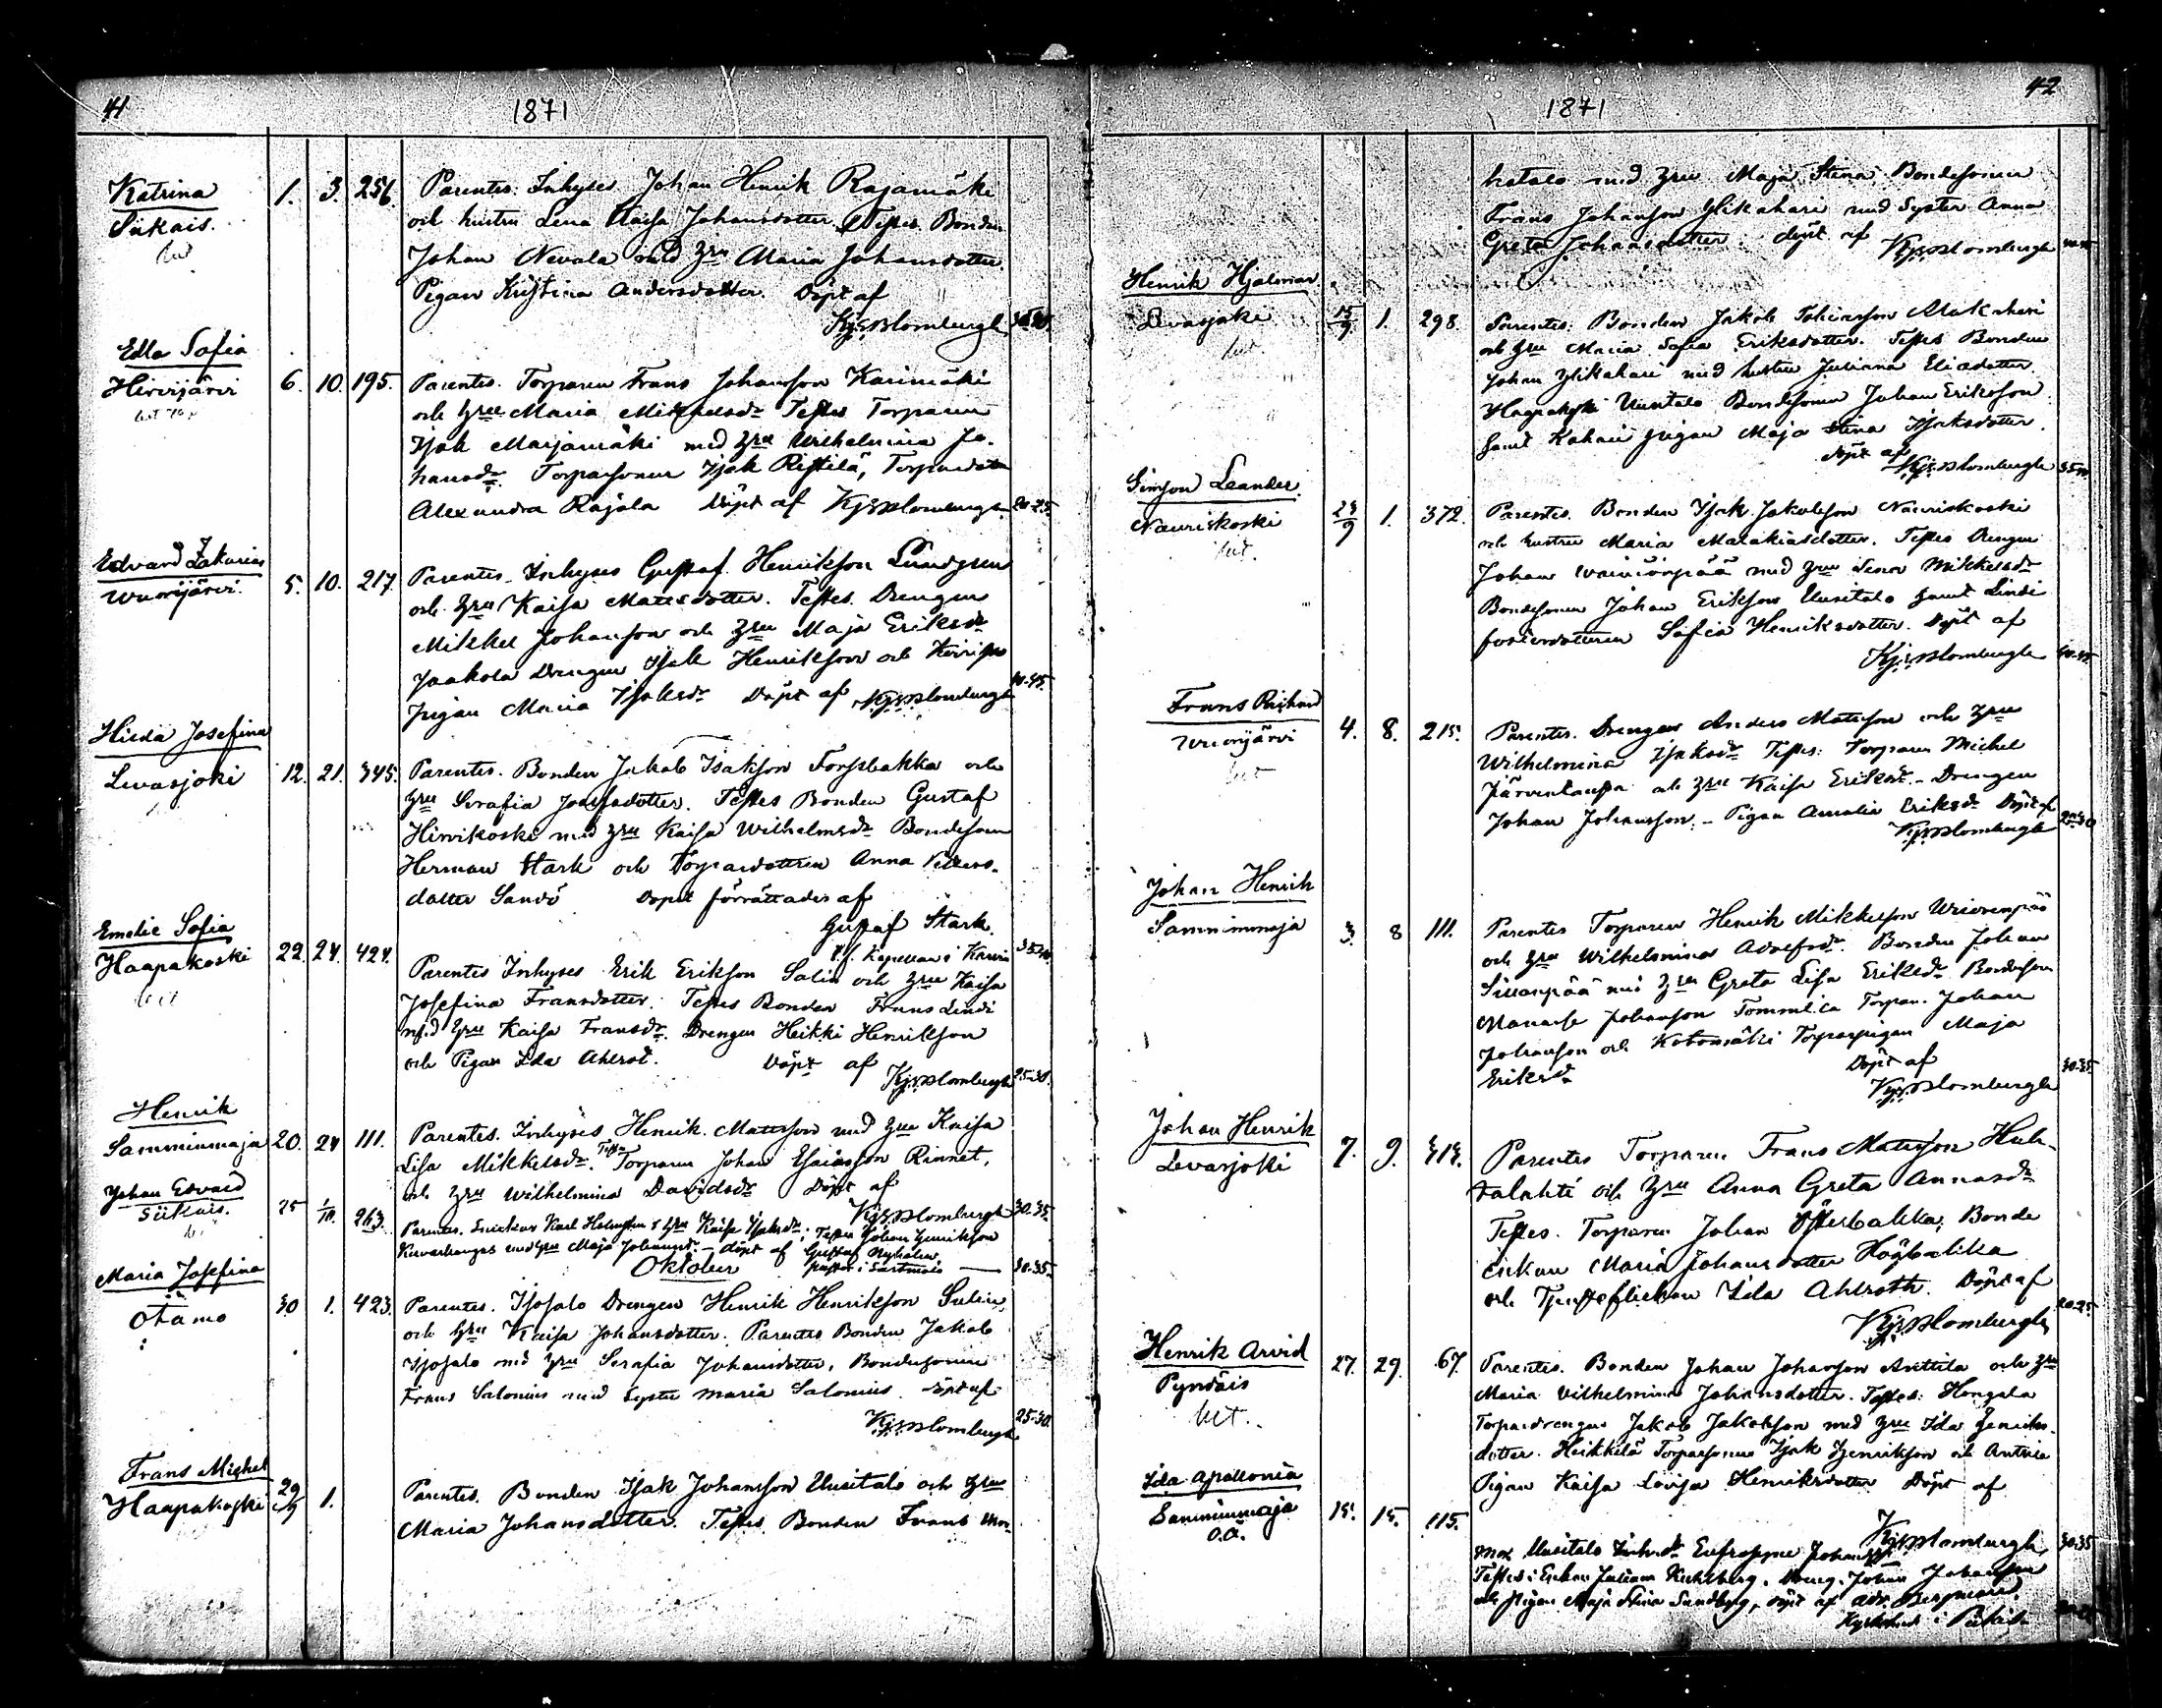 41
1871
Katrina
Siikais.
1. 3. 256.
Parentes. Inhyses Johan Henrik Rajamäki
och hustru Lena Kaisa Johansdotter. Testes. Bonden
Johan Nevala med hru Maria Johansdotter.
Pigan Kristina Andersdotter. Döpt af
KjsBlombergh
Edla Sofia
Hirvijärvi
6. 10. 195.
Parentes. Torparen Frans Johansson Karimäki
och hru Maria Mikkelsdr Testes Torparen
Isak Marjamäki med hru Wilhelmina Jo-
hansdr. Torparsonen Isak Ristilä, Torparedottr
Alexandra Rajala Döpt af KjsBlombergh 20-25
Edvard Zakarias
Wuorijärvi.
5. 10. 217.
Parentes. Inhyses Gustaf Henriksson Lundgren
och hru Kaisa Mattsdotter. Testes. Drengen
Mikkel Johansson och hru Maja Eriksdr
Jaakola Drengen Isak Henriksson och
pigan Maria Isaksdr Döpt af KjsBlombergh 40-45.
Hilda Josefina
Levasjoki
12. 21. 345.
Parentes. Bonden Jakob Isaksson Forsbakka och
hru Serafia Josefsdotter. Testes Bonden Gustaf
Hirvikoski med hru Kaisa Wilhelmsdr Bondeson
Herman Stark och Torparedottren Anna
dotter Sandö Dopet förrättades af
Gustaf Stark.
Kapellan i Karvia
Emelie Sofia
Haapakoski
22. 24. 424.
Parentes Inhyses Erik Eriksson Salin och hru Kaisa
Josefina Fransdotter. Testes Bonden Frans Lindi
med hru Kaisa Fransdr. Drengen Heikki Henriksson
och Pigan Ida Ahlrot. Döpt af
KjsBlombergh 25-30.
Henrik
Samminmaja
20. 24 111.
Parentes. Inhyses Henrik Mattsson med hru Kaisa
Lisa Mikkelsdr. Testes Torparen Johan Esaiasson Rinnet,
och hru Wilhelmina Davidsdr Döpt af
KjsBlombergh 30-35.
Johan Edvard
Siikais.
25 1/10. 263.
Parentes. Karl Holmsten & hru Kaisa Isaksdr; Testes Johan Henriksson
med hru Maja Johansdr. – döpt af Gustaf Nyholm
Oktober
pastor i Sastmola — 30-35.
Maria Josefina
Otamo
30 1. 423.
Parentes. Isosalo Drengen Henrik Henriksson Salin
och hru Kaisa Johansdotter. Parentes Bonden Jakob
Isosalo med hru Serafia Johansdotter, Bondesonen
Frans Salonius med syster Maria Salonius. Döpt af
KjsBlombergh 25-30
Frans Michel
Haapakoski
29/9 1.
Parentes. Bonden Isak Johansson Uusitalo och hru
Maria Johansdotter. Testes Bonden Frans
42
1871
med hru Maja Stina, Bondesonen
Frans Johansson Ylikahari med Syster Anna
Greta Johansdotter. döpt af KjsBlombergh
Henrik Hjalmar
Levasjoki
15/9 1. 298.
Parentes. Bonden Jakob Johansson Alakahari
och hru Maria Sofia Eriksdotter. Testes Bonden
Johan Ylikahari med hustru Juliana Eliedotter.
Haapakoski Uusitalo Bondesonen Johan Eriksson
samt Kahari pigan Maja Stina Isaksdotter.
döpt af KjsBlombergh
Simson Leander.
Nauriskoski
23/9 1. 372.
Parentes. Bonden Isak Jakobsson Nauriskoski
och hustru Maria Malakiasdotter. Testes Drengen
Johan Wainionpää med hru Lena Mikkelsdr
Bondesonen Johan Eriksson Uusitalo samt Lindi
fosterdottren Sofia Henriksdotter. Döpt af
KjsBlombergh 40-45.
Frans Richard
Wuorijärvi
4. 8. 215.
Parentes. Drengen Anders Mattsson och hru
Wilhelmina Isaksdr Testes: Torparen Michel
Järventausta och hru Kaisa Eriksdr. – Drengen
Johan Johansson. – Pigan Amalia Eriksdr Döpt af
KjsBlombergh 25-30
Johan Henrik
Samminmaja
3. 8 111.
Parentes Torparen Henrik Mikkelsson Wuorenpää
och hru Wilhelmina Adolfsdr. Bonden Johan
Sillanpää med hru Greta Lisa Eriksdr Bondeson
Manasse Johansson Tommila Torpar. Johan
Johansson och Kotomäki Torparpigan Maja
Eriksdr Döpt af
KjsBlombergh 30-35.
Johan Henrik
Levasjoki
7. 9. 314.
Parentes Torparen Frans Mattsson Huh-
talahti och hru Anna Greta Annasdr
Testes. Torparen Johan Österbakka, Bonde
enkan Maria Johansdotter Högbakka
och Tjensteflickan Ida Ahlroth. Döpt af
KjsBlombergh 20-25
Henrik Arvid
Pyndäis
27. 29. 67.
Parentes. Bonden Johan Johansson Anttila och hru
Maria Vilhelmina Johansdotter. Testes: Hongala
Torparedrengen Jakob Jakobsson med hru Ida Henriks-
dotter. Heikkilä Torparsonen Isak Henriksson och Anttila
Pigan Kaisa Lovisa Henriksdotter Döpt af
KjsBlombergh 30-35
Ida Apollonia
Samminmaja
o.ä.
14. 15. 115.
Mor Uusitalo Inh.dr Eufrosyne Johansdr
Testes: Enkan Juliana Kuhlberg. Dreng. Johan Johansson
och Pigan Maja Stina Sundberg, döpt af